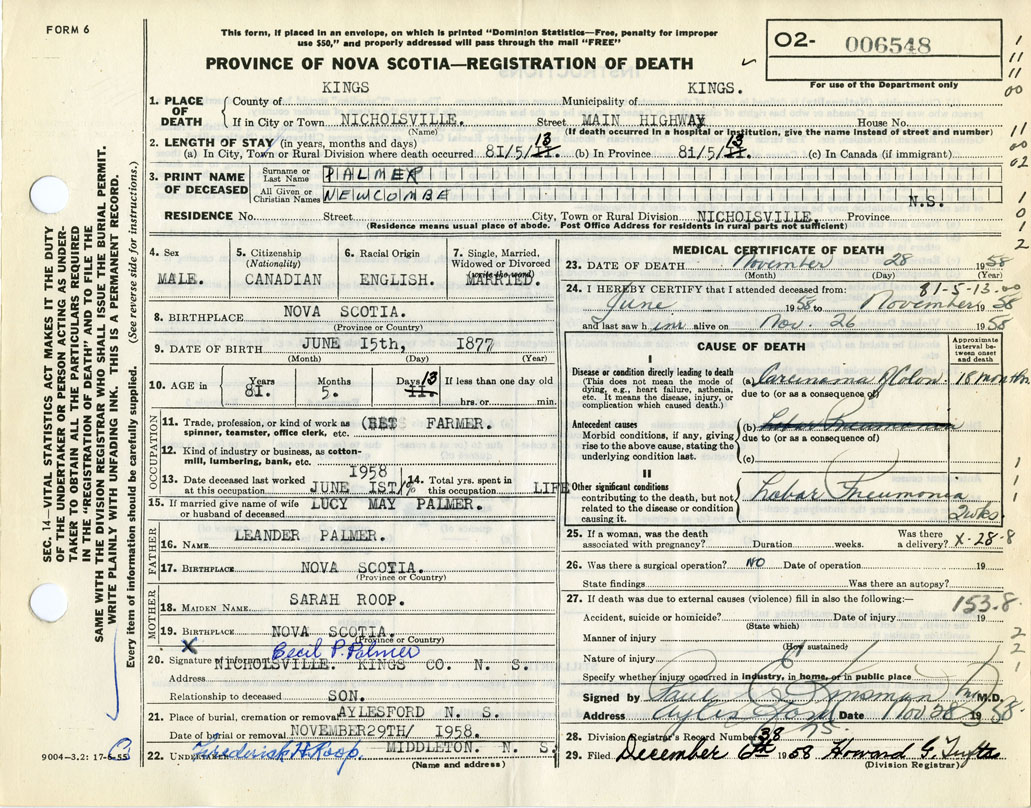 FORM 6
This form, if placed in an envelope, on which is printed "Dominion Statistics—Free, penalty for improper
use $50," and properly addressed will pass through the mail "FREE"
O2- 006548
For use of the Department only
PROVINCE OF NOVA SCOTIA—REGISTRATION OF DEATH
1. PLACE OF DEATH County of KINGS Municipality of KINGS.
If in City or Town NICHOLSVILLE. Street MAIN HIGHWAY House No.
(Name) (If death occurred in a hospital or institution, give the name instead of street and number)
2. LENGTH OF STAY (in years, months and days)
(a) In City, Town or Rural Division where death occurred 8I/5/II. 13 (b) In Province 8I/5/II. 13 (c) In Canada (if immigrant)
3. PRINT NAME OF DECEASED
Surname or Last Name PALMER
All Given or Christian Names NEWCOMBE
RESIDENCE No. Street City, Town or Rural Division NICHOLSVILLE. Province N.S.
(Residence means usual place of abode. Post Office Address for residents in rural parts not sufficient)
4. Sex MALE.
5. Citizenship (Nationality) CANADIAN
6. Racial Origin ENGLISH.
7. Single, Married, Widowed or Divorced (write the word) MARRIED.
8. BIRTHPLACE NOVA SCOTIA.
(Province or Country)
9. DATE OF BIRTH JUNE I5th, I877
(Month) (Day) (Year)
10. AGE in Years 8I. Months 5. Days II. 13 If less than one day old
hrs. or min.
OCCUPATION
11. Trade, profession, or kind of work as spinner, teamster, office clerk, etc. (RET FARMER.
12. Kind of industry or business, as cotton-mill, lumbering, bank, etc.
13. Date deceased last worked at this occupation JUNE IST/ I958
14. Total yrs. spent in this occupation LIFE
15. If married give name of wife or husband of deceased LUCY MAY PALMER.
FATHER
16. NAME LEANDER PALMER.
17. BIRTHPLACE NOVA SCOTIA.
(Province or Country)
MOTHER
18. MAIDEN NAME SARAH ROOP.
19. BIRTHPLACE NOVA SCOTIA.
(Province or Country)
X
20. Signature of Cecil P. Palmer
Address NICHOLSVILLE. KINGS CO. N. S.
Relationship to deceased SON.
21. Place of burial, cremation or removal AYLESFORD N. S.
Date of burial or removal NOVEMBER29TH/ I958.
22. UNDERTAKER Frederick H. Roop. MIDDLETON. N. S.
(Name and address)
MEDICAL CERTIFICATE OF DEATH
23. DATE OF DEATH November 28 1958
(Month) (Day) (Year)
81-5-13.00
24. I HEREBY CERTIFY that I attended deceased from:
June 1958 to November 1958
and last saw him alive on Nov. 26 1958
CAUSE OF DEATH
Approximate interval between onset and death
I
Disease or condition directly leading to death
(This does not mean the mode of dying, e.g., heart failure, asthenia, etc. It means the disease, injury, or complication which caused death.)
(a) Carcinoma of Colon. 18 months
due to (or as a consequence of)
Antecedent causes
Morbid conditions, if any, giving rise to the above cause, stating the underlying condition last.
(b) Lobar Pneumonia
due to (or as a consequence of)
(c)
II
Other significant conditions
contributing to the death, but not related to the disease or condition causing it.
Lobar Pneumonia 2 wks.
25. If a woman, was the death associated with pregnancy? Duration weeks. Was there a delivery? X-28-8
26. Was there a surgical operation? NO Date of operation 19
State findings Was there an autopsy?
27. If death was due to external causes (violence) fill in also the following:—
153.8
Accident, suicide or homicide? Date of injury 19
(State which)
Manner of injury
(How sustained)
Nature of injury
Specify whether injury occurred in industry, in home, or in public place
Signed by Paul Kinsman M.D.
Address Aylesford Date Nov. 28 1958.
28. Division Registrar's Record Number 38
75
29. Filed December 6th 1958 Howard G.
(Division Registrar)
SEC. 14—VITAL STATISTICS ACT MAKES IT THE DUTY
OF THE UNDERTAKER OR PERSON ACTING AS UNDER-
TAKER TO OBTAIN ALL THE PARTICULARS REQUIRED
IN THE "REGISTRATION OF DEATH" AND TO FILE THE
SAME WITH THE DIVISION REGISTRAR WHO SHALL ISSUE THE BURIAL PERMIT.
WRITE PLAINLY WITH UNFADING INK. THIS IS A PERMANENT RECORD.
Every item of information should be carefully supplied. (See reverse side for instructions.)
9004-3.2: 17-6-55
1
11
11
00
11
00
02
1
0
1
2
1
1
1
2
2
1